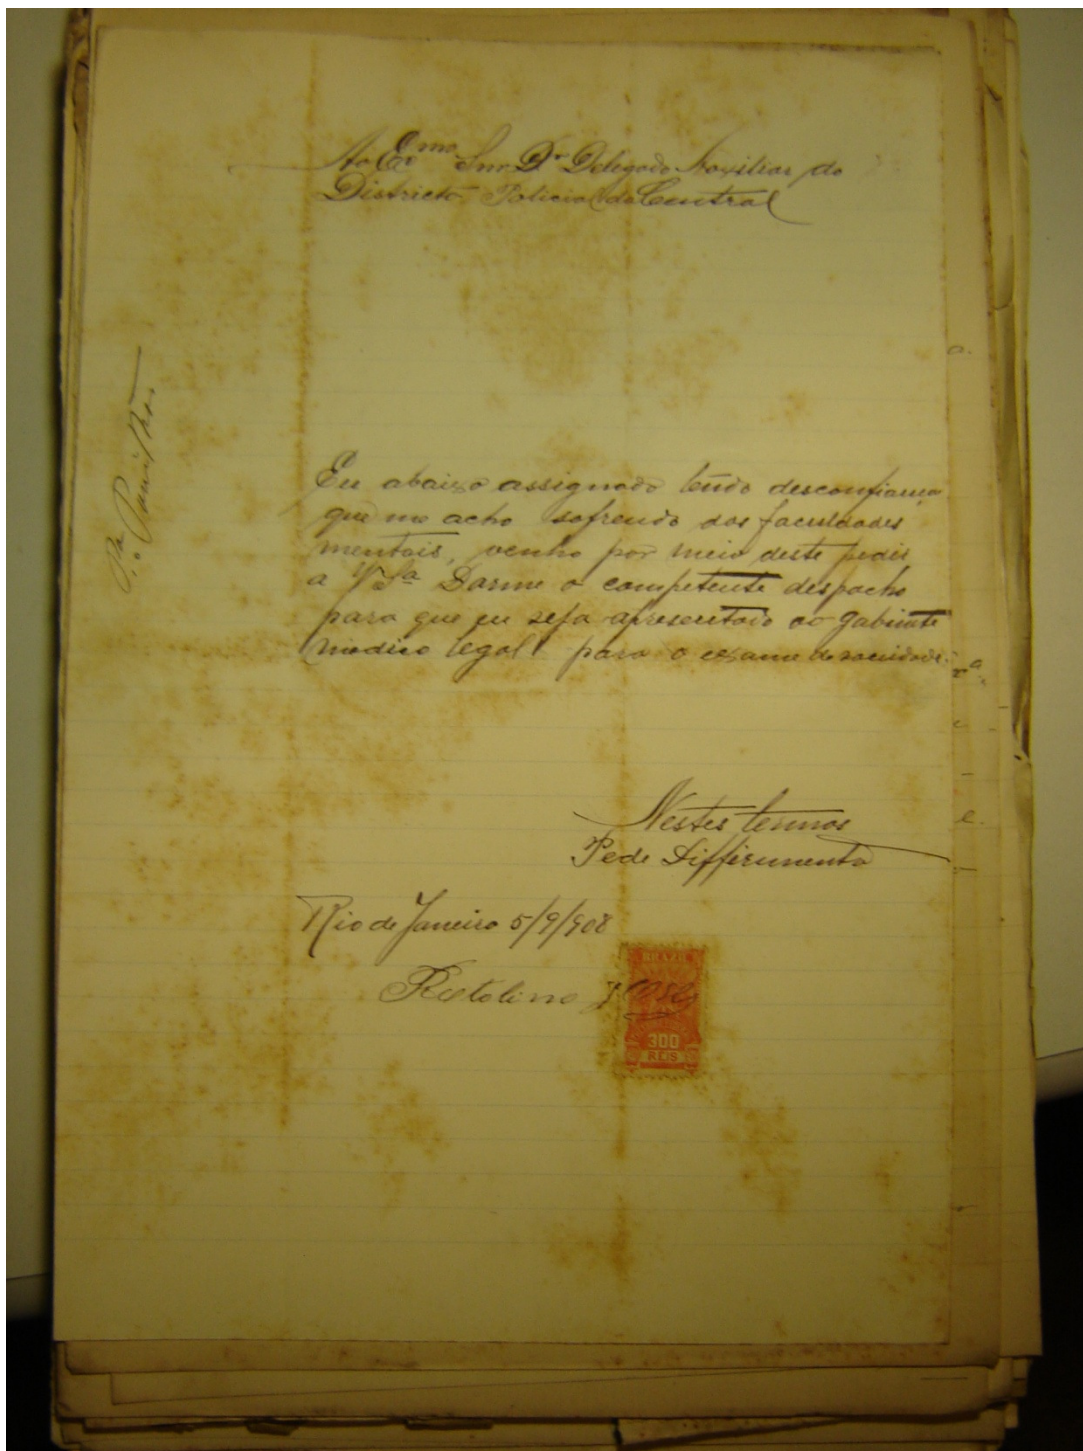 Ao Ex.mo Snr Dr Delegado Auxiliar do
Districto Policial da Central
Eu abaixo assignado tendo desconfiança
que me acho sofrendo das faculdades
mentais, venho por meio deste pedir
a V Sa Darme o competente despacho
para que eu seja apresentado ao gabinete
medico legal para o exame de sanidade.
Nestes termos
Pede Differimento
Rio de Janeiro 5/9/908
BRAZIL
300
REIS